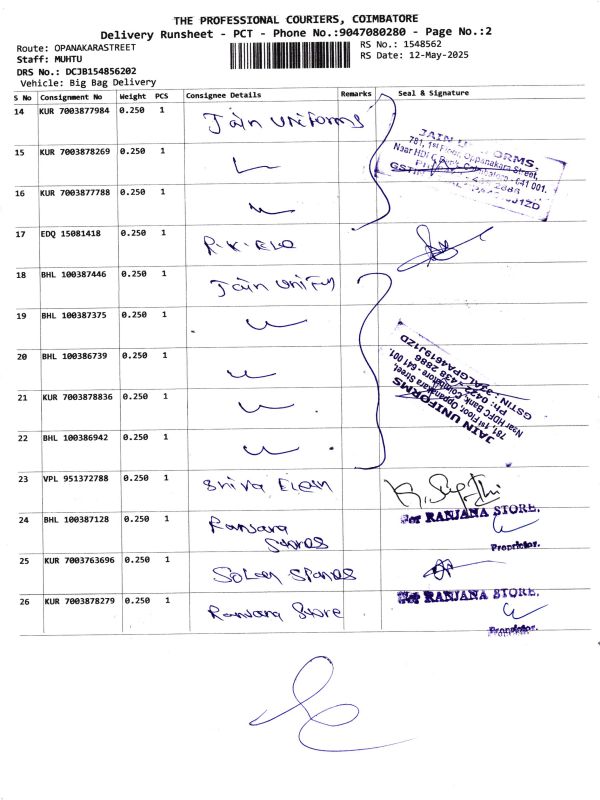 THE PROFESSIONAL COURIERS, COIMBATORE
Delivery Runsheet - PCT - Phone No.:9047080280 - Page No.:2
Route: OPANAKARASTREET
RS No.: 1548562
Staff: MUHTU
RS Date: 12-May-2025
DRS No.: DCJB154856202
Vehicle: Big Bag Delivery
S No Consignment No Weight PCS Consignee Details Remarks Seal & Signature
14 KUR 7003877984 0.250 1 Jain Uniforms
15 KUR 7003878269 0.250 1
16 KUR 7003877788 0.250 1
JAIN UNIFORMS.
781, 1st Floor, Oppanakara Street,
Near HDFC Bank, Coimbatore - 641 001.
17 EDQ 15081418 0.250 1
18 BHL 100387446 0.250 1 Jain Unifom
19 BHL 100387375 0.250 1
20 BHL 100386739 0.250 1
21 KUR 7003878836 0.250 1
22 BHL 100386942 0.250 1
JAIN UNIFORMS
781, 1st Floor, Oppanakara Street,
Near HDFC Bank, Coimbatore - 641 001.
Ph: 0422 - 2438 2886
23 VPL 951372788 0.250 1 Shiva Elem
24 BHL 100387128 0.250 1 Ranjana Stores
For RANJANA STORE.
Proprietor.
25 KUR 7003763696 0.250 1
26 KUR 7003878279 0.250 1 Ranjana Store
For RANJANA STORE.
Proprietor.